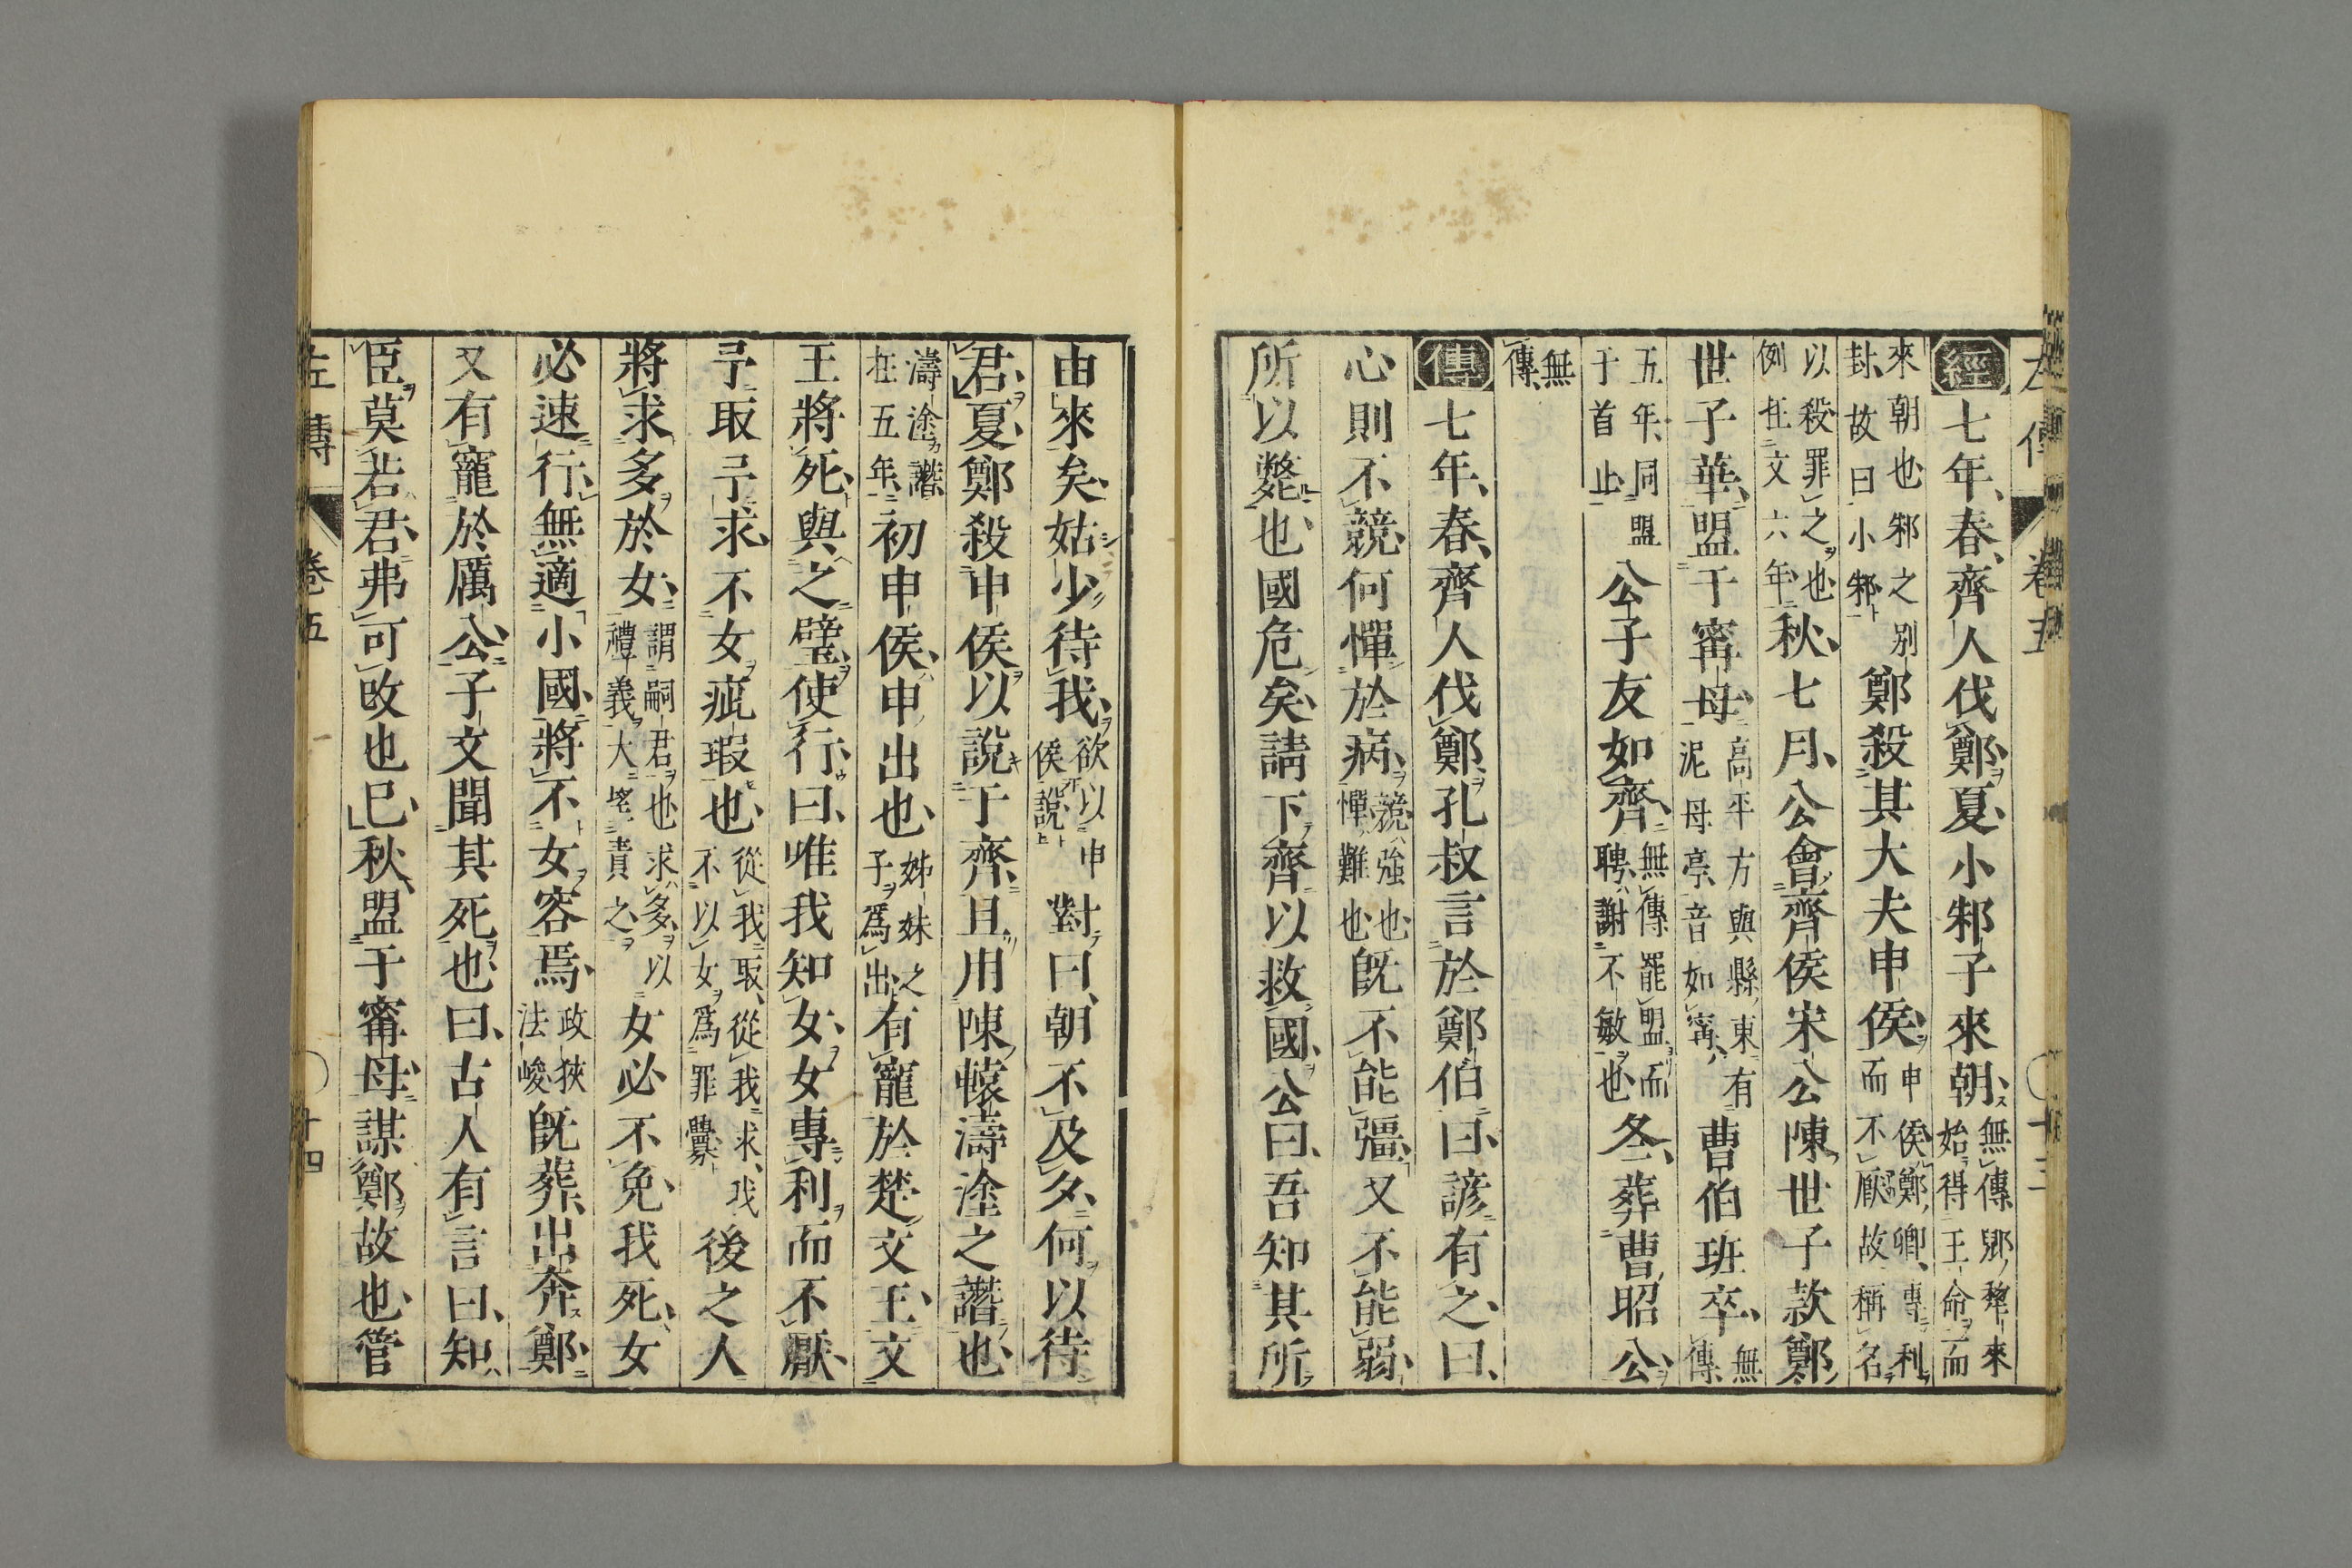 左傳 卷五 十三
經七年、春、齊人伐鄭、夏、小邾子來朝、無傳郳犂來始得王命而
來朝也邾之別封、故曰小邾鄭殺其大夫申侯、申侯鄭卿、專利而不厭故稱名
以殺罪之也例在文六年秋、七月、公會齊侯宋公陳世子款鄭
世子華、盟于甯母、高平方與縣東有泥母亭、音如甯、曹伯班卒、無傳、
五年、同盟于首止公子友如齊、無傳罷盟而聘、謝不敏也冬、葬曹昭公、
無傳、
傳七年、春、齊人伐鄭孔叔言於鄭伯曰、諺有之、曰、
心則不競何憚於病、競強也憚難也既不能彊、又不能弱、
所以斃也、國危矣、請下齊以救國、公曰、吾知其所
由來矣、姑少待我、欲以申侯說對曰、朝不及夕、何以待
君、夏、鄭殺申侯以說于齊、且用陳轅濤塗之譖也、
濤塗譖在五年、初申侯、申出也、姊妹之子爲出有寵於楚文王、文
王將死、與之璧、使行、曰、唯我知女、女專利而不厭、
予取予求、不女疵瑕也、從我取、從我求、我不以女爲罪釁後之人
將求多於女、謂嗣君也求多、以禮義大望責之女必不免、我死、女
必速行、無適小國、將不女容焉、政狹法峻既葬、出奔鄭、
又有寵於厲公、子文聞其死也、曰、古人有言曰、知
臣莫若君、弗可改也已、秋、盟于甯母、謀鄭故也、管
左傳 卷五 十四